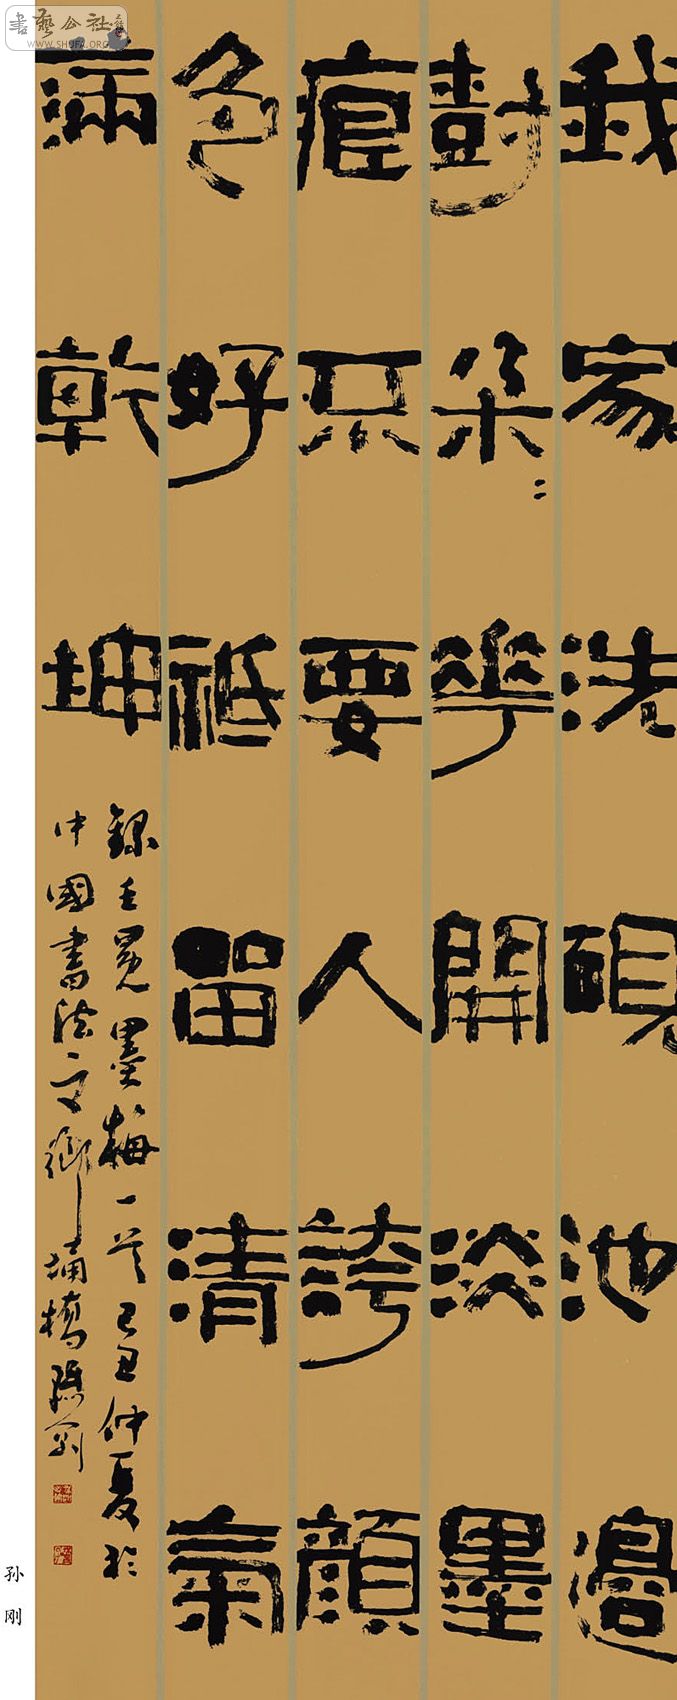 書藝公社
WWW.SHUFA.ORG
我家洗硯池邊
樹朵々花開淡墨
痕只要人誇顔
色好祗留清氣
滿乾坤
錄王冕墨梅一首己丑仲夏於
中國書法之鄉埇橋孫剛
孙刚